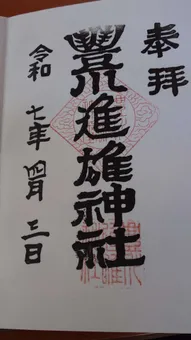 奉拝
豐川進雄神社
令和七年四月三日